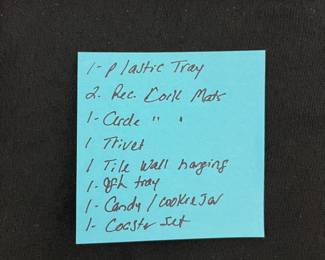 1- Plastic Tray
2. Rec. Cork Mats
1- Circle " "
1 Trivet
1 Tile Wall hanging
1- tray
1- Candy / cookie Jar
1- Coaster set